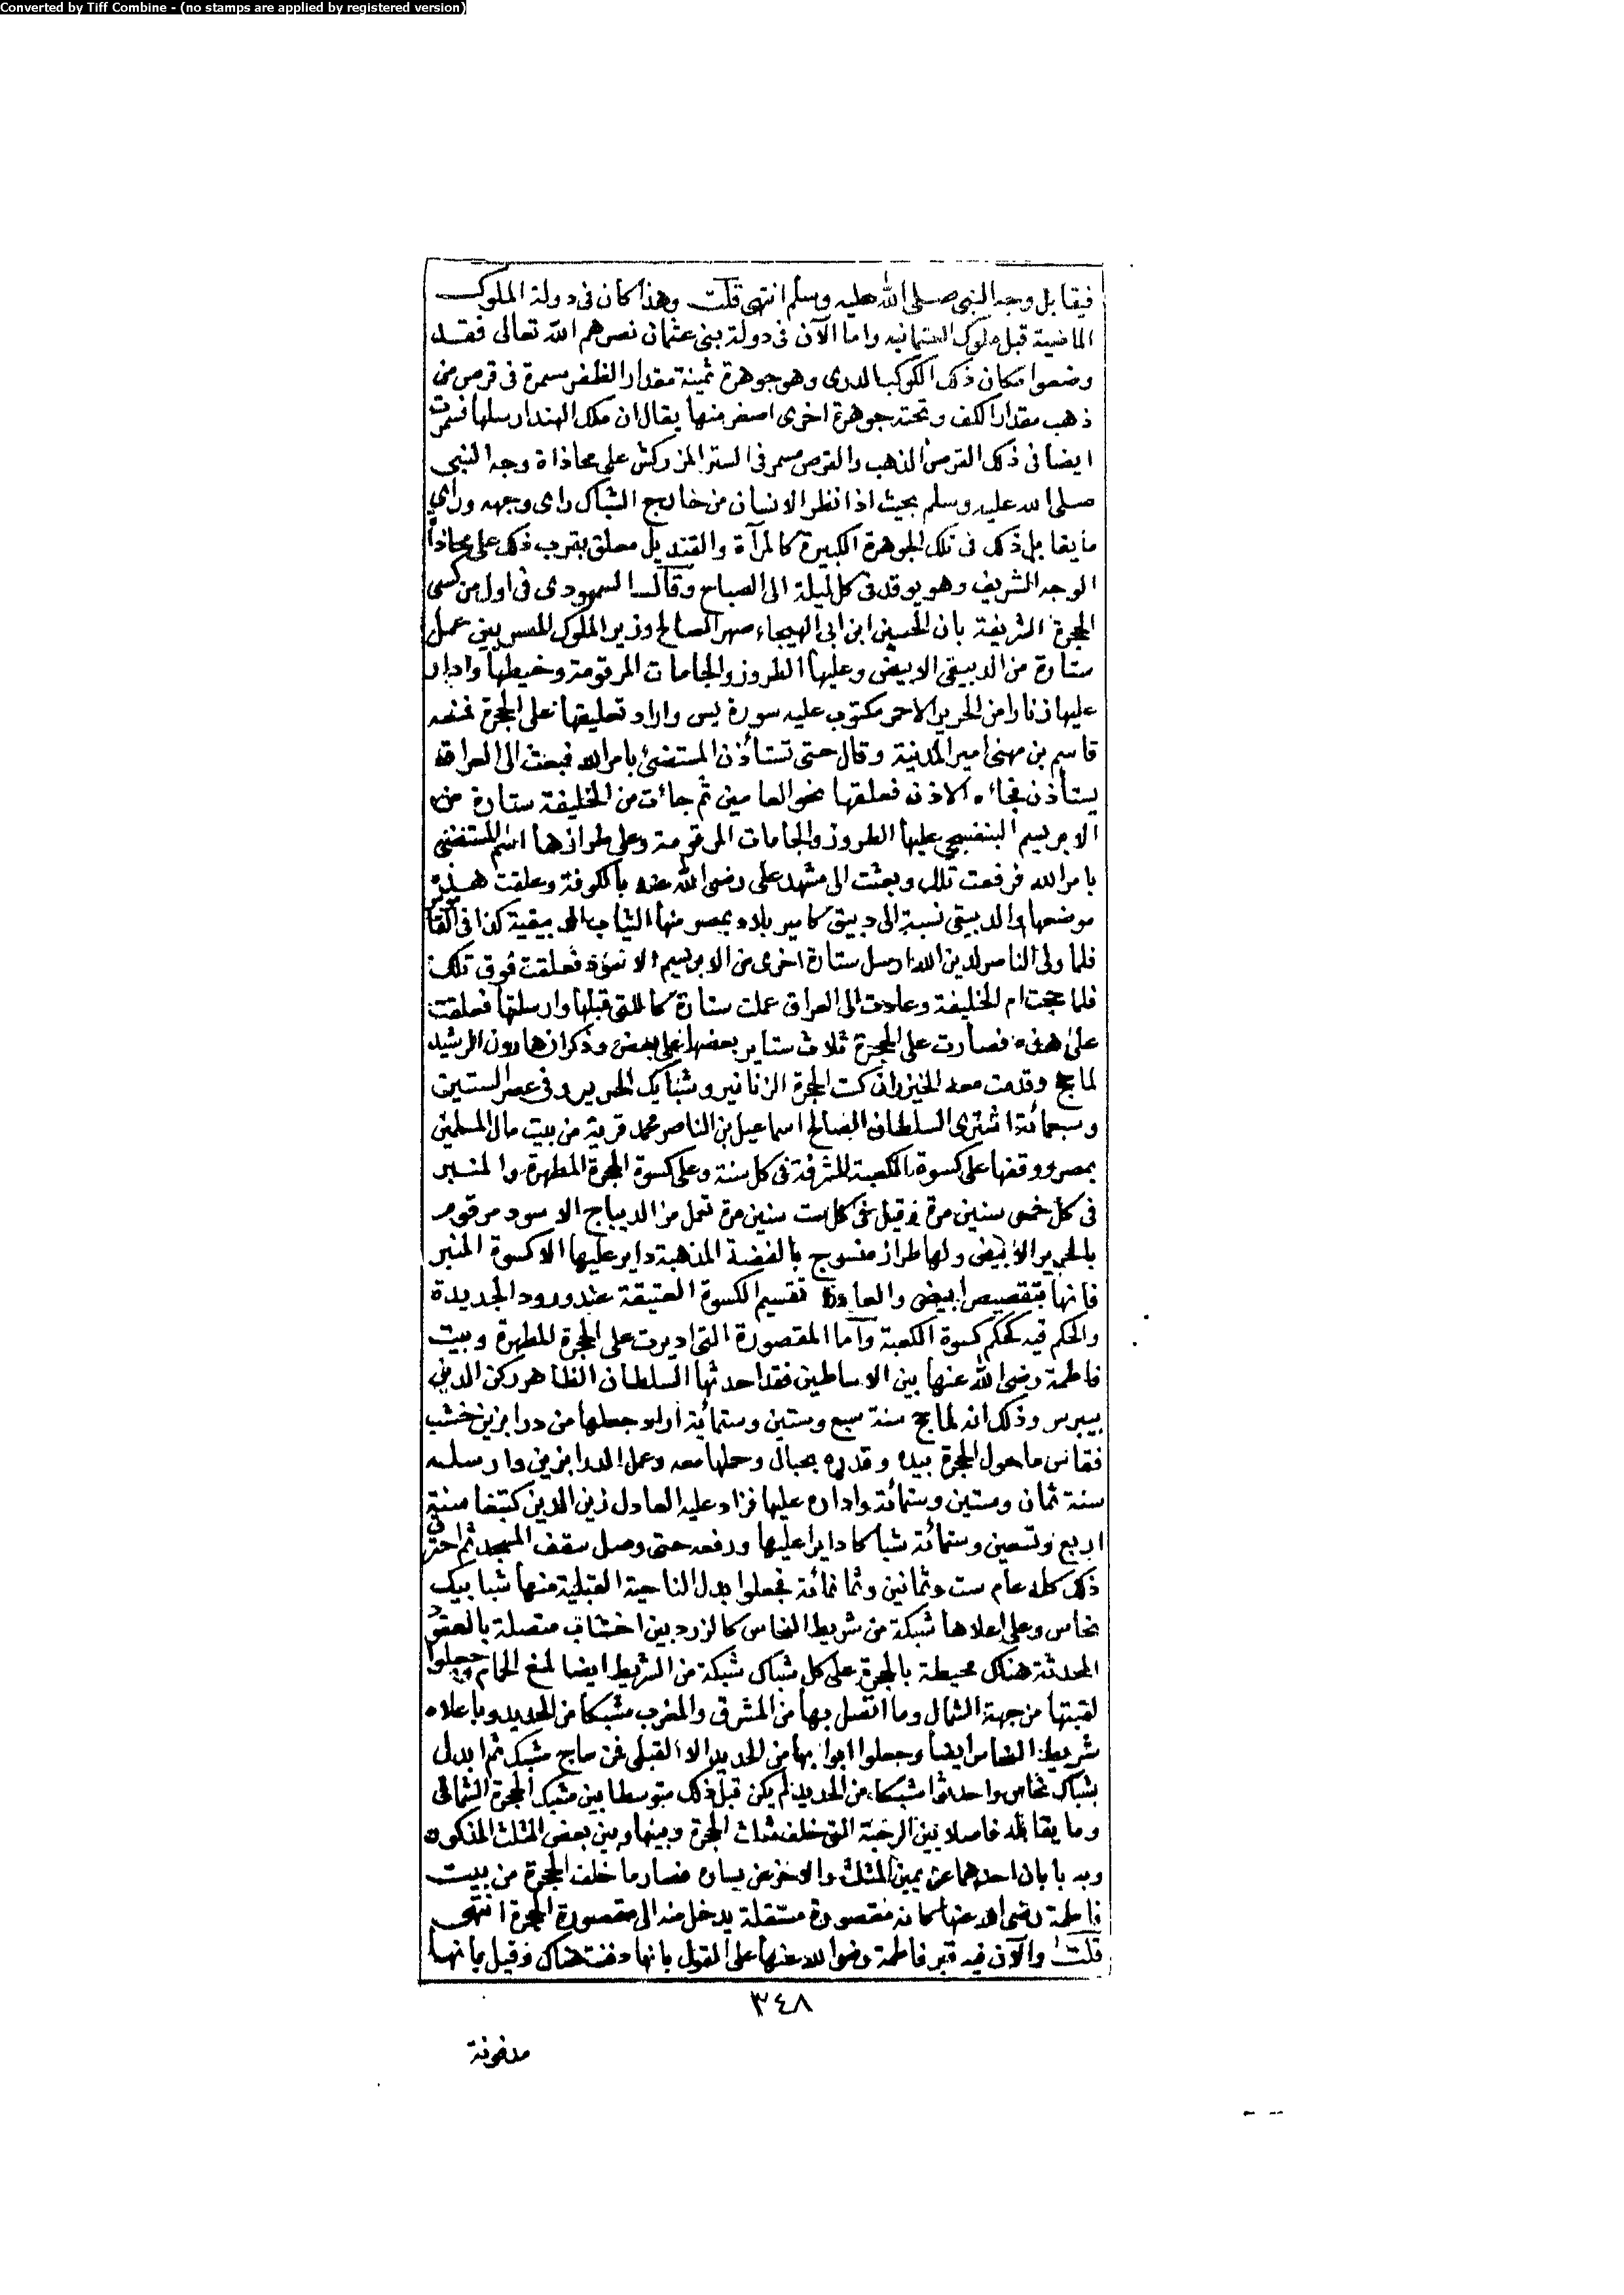 Converted by Tiff Combine - (no stamps are applied by registered version)
فيقابل وجه النبي صلى الله عليه وسلم انتهى قلت وهذا كان فى دولة الملوك
الماضية قبل ملوك العثمانيه واما الآن فى دولة بنى عثمان نصرهم الله تعالى فقد
وضعوا مكان ذلك الكوكب الدرى وهو جوهرة ثمينة مقدار الظفر مسمرة فى قرص من
ذهب مقدار الكف وتحته جوهرة اخرى اصغر منها يقال ان ملك الهند ارسلها فسمرت
ايضا فى ذلك القرص الذهب والقرص مسمر فى الستر المزركش على محاذاة وجه النبى
صلى الله عليه وسلم بحيث اذا نظر الانسان من خارج الشباك راى وجهه وراى
ما يقابل ذلك فى تلك الجوهرة الكبيرة كالمرآة والقنديل معلق بقرب ذلك على محاذاة
الوجه الشريف وهو يوقد فى كل ليلة الى الصباح وقال السمهودى فى اول من كسى
الحجرة الشريفة بان الحسين ابن ابى الهيجاء صهر الصالح وزير الملوك المصريين عمل
ستارة من الدبيقى الابيض وعليها الطروز والجامات المرقومة وخيطها وادار
عليها زنارا من الحرير الاحمر مكتوب عليه سورة يس واراد تعليقها على الحجرة فمنعه
قاسم بن مهنى امير المدينة وقال حتى تستأذن المستضئ بامر الله فبعث الى العراق
يستأذن فجاءه الاذن فعلقها نحو العامين ثم جاءت من الخليفة ستارة من
الابريسم البنفسجي عليها الطروز والجامات المرقومة وعلى طرازها اسم المستضئ
بامر الله فرفعت تلك وبعثت الى مشهد على رضى الله عنه بالكوفة وعلقت هذه
موضعها والدبيقى نسبة الى دبيق كامير بلده بمصر منها الثياب الدبيقية كذا فى القاموس
فلما ولى الناصر لدين الله ارسل ستارة اخرى من الابريسم الاسود فعلقت فوق تلك
فلما حجت ام الخليفة وعادت الى العراق عملت ستارة كالتى قبلها وارسلتها فعلقت
على هذه فصارت على الحجرة ثلاث ستاير بعضها على بعض وذكر ان هارون الرشيد
لما حج وقدمت معه الخيزران كست الحجرة الزنانير وشبابيك الحرير وفى عصر الستين
وسبعمائة اشترى السلطان الصالح اسماعيل بن الناصر محمد قرية من بيت مال المسلمين
بمصر ووقفها على كسوة الكعبة المشرفة فى كل سنة وعلى كسوة الحجرة المطهرة والمنبر
فى كل خمس سنين مرة وقيل فى كل ست سنين مرة تعمل من الديباج الاسود مرقوم
بالحرير الابيض ولها طراز منسوج بالفضة المذهبة داير عليها الا كسوة المنبر
فانها بتقصيص ابيض والعادة تقسيم الكسوة العتيقة عند ورود الجديدة
والحكم فيه كحكم كسوة الكعبة واما المقصورة التى اديرت على الحجرة المطهرة وبيت
فاطمة رضى الله عنها بين الاساطين فقد احدثها السلطان الظاهر ركن الدين
بيبرس وذلك انه لما حج سنة سبع وستين وستمائة اراد جعلها من درابزين خشب
فقاس ما حول الحجرة بيده وقدره بحبال وحملها معه وعمل الدرابزين وارسله
سنة ثمان وستين وستمائة واداره عليها فزاد عليه العادل زين الدين كتبغا سنة
اربع وتسعين وستمائة شباكا دايرا عليها ورفعه حتى وصل سقف المسجد ثم احترق
ذلك كله عام ست وثمانين وثمانمائة فجعلوا بدل الناحية القبلية منها شبابيك
نحاس وعلى اعلاها شبكة من شريط النحاس كالزرد بين اخشاب متصلة بالعقود
المحدثة هناك محيطة بالحجرة على كل شباك شبكة من الشريط ايضا لمنع الحمام وجعلوا
لقبتها من جهة الشمال وما اتصل بها من المشرق والمغرب مشبكا من الحديد وباعلاه
شريط النحاس ايضا وجعلوا ابوابها من الحديد الا القبلى فمن ساج مشبك ثم ابدل
بشباك نحاس واحدثوا مشبكا من الحديد لم يكن قبل ذلك متوسطا بين مشبك الحجرة الشمالى
وما يقابله فاصلا بين الرحبة التى خلف مثلث الحجرة وبينها وبين بعض المثلث المذكور
وبه بابان احدهما عن يمين المثلث والاخر عن يساره فصار ما خلف الحجرة من بيت
فاطمة رضى الله عنها كانه مقصورة مستقلة يدخل منه الى مقصورة الحجرة انتهى
قلت والآن فيه قبر فاطمة رضى الله عنها على القول بانها دفنت هناك وقيل بانها
٣٤٨
مدفونة